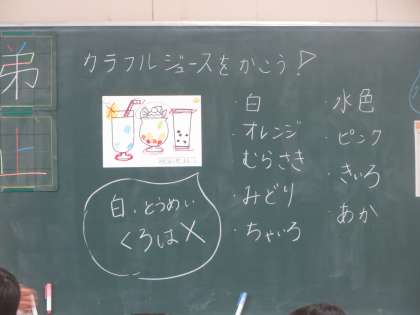 カラフルジュースをかこう!
弟
上
・白
・オレンジ
むらさき
・みどり
・ちゃいろ
・水色
・ピンク
・きいろ
・あか
白・とうめい
くろは×